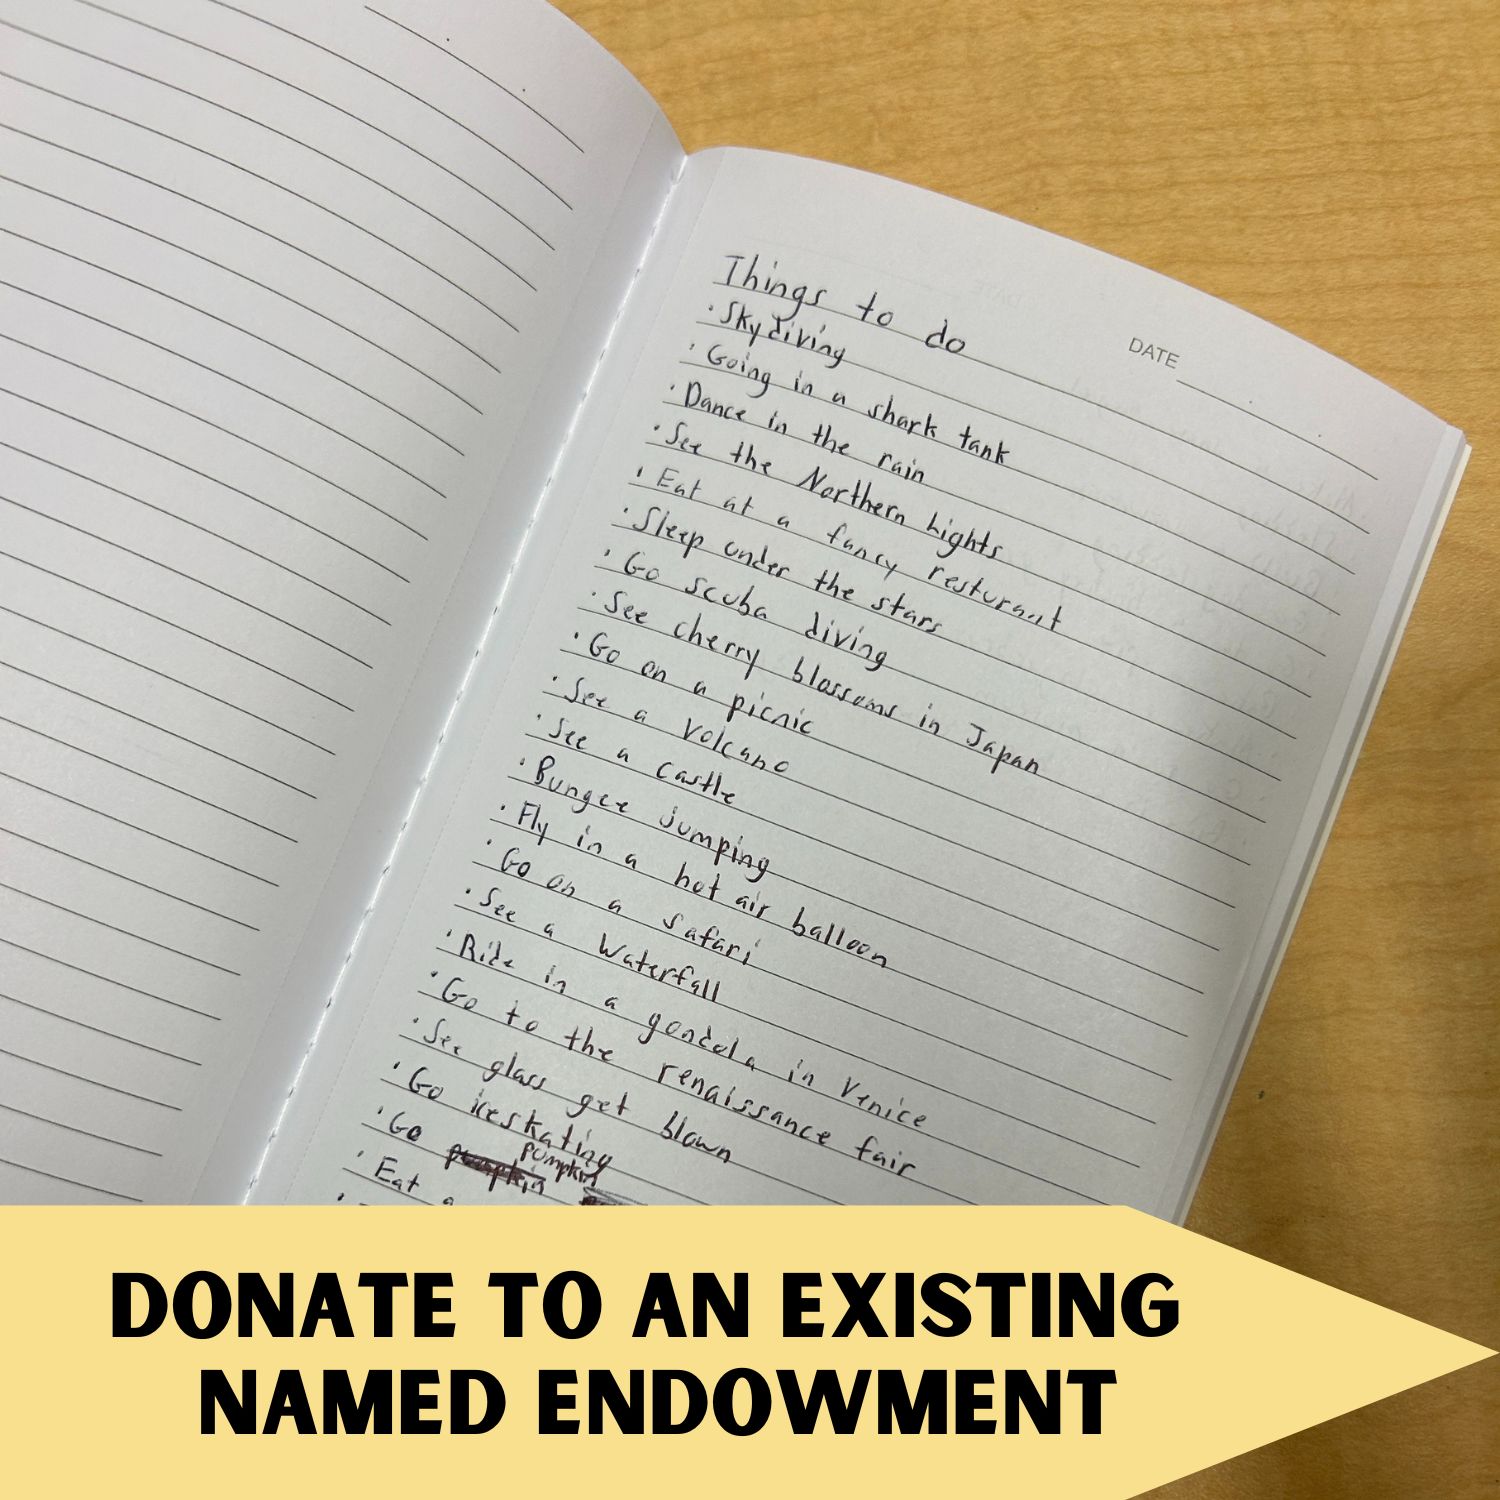 DATE
Things to do
· Skydiving
· Going in a shark tank
· Dance in the rain
· See the Northern lights
· Eat at a fancy resturant
· Sleep under the stars
· Go scuba diving
· See cherry blossoms in Japan
· Go on a picnic
· See a Volcano
· See a castle
· Bungee jumping
· Fly in a hot air balloon
· Go on a safari
· See a Waterfall
· Ride in a gondola in Venice
· Go to the renaissance fair
· See glass get blown
· Go iceskating
· Go pumpkin
· Eat a
DONATE TO AN EXISTING
NAMED ENDOWMENT